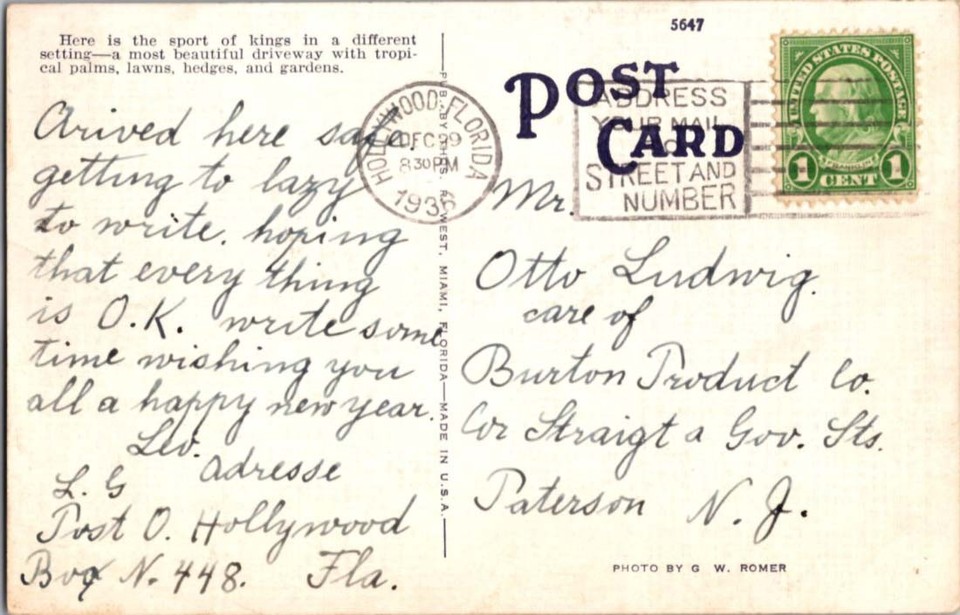 5647
Here is the sport of kings in a different
setting—a most beautiful driveway with tropi-
cal palms, lawns, hedges, and gardens.
POST
CARD
HOLLYWOOD, FLORIDA
DEC 29
8 30 PM
1936
ADDRESS
YOUR MAIL
TO
STREET AND
NUMBER
UNITED STATES POSTAGE
FRANKLIN
1 CENT 1
Arived here safe
getting to lazy
to write. hoping
that every thing
is O.K. write some
time wishing you
all a happy new year.
Leo.
adresse
L. G
Post O. Hollywood
Box N. 448. Fla.
PUB. BY THOS. R. WEST, MIAMI, FLORIDA—MADE IN U.S.A.
Mr.
Otto Ludwig.
care of
Burton Product Co.
Cor Straigt a Gov. Sts.
Paterson N. J.
PHOTO BY G W. ROMER